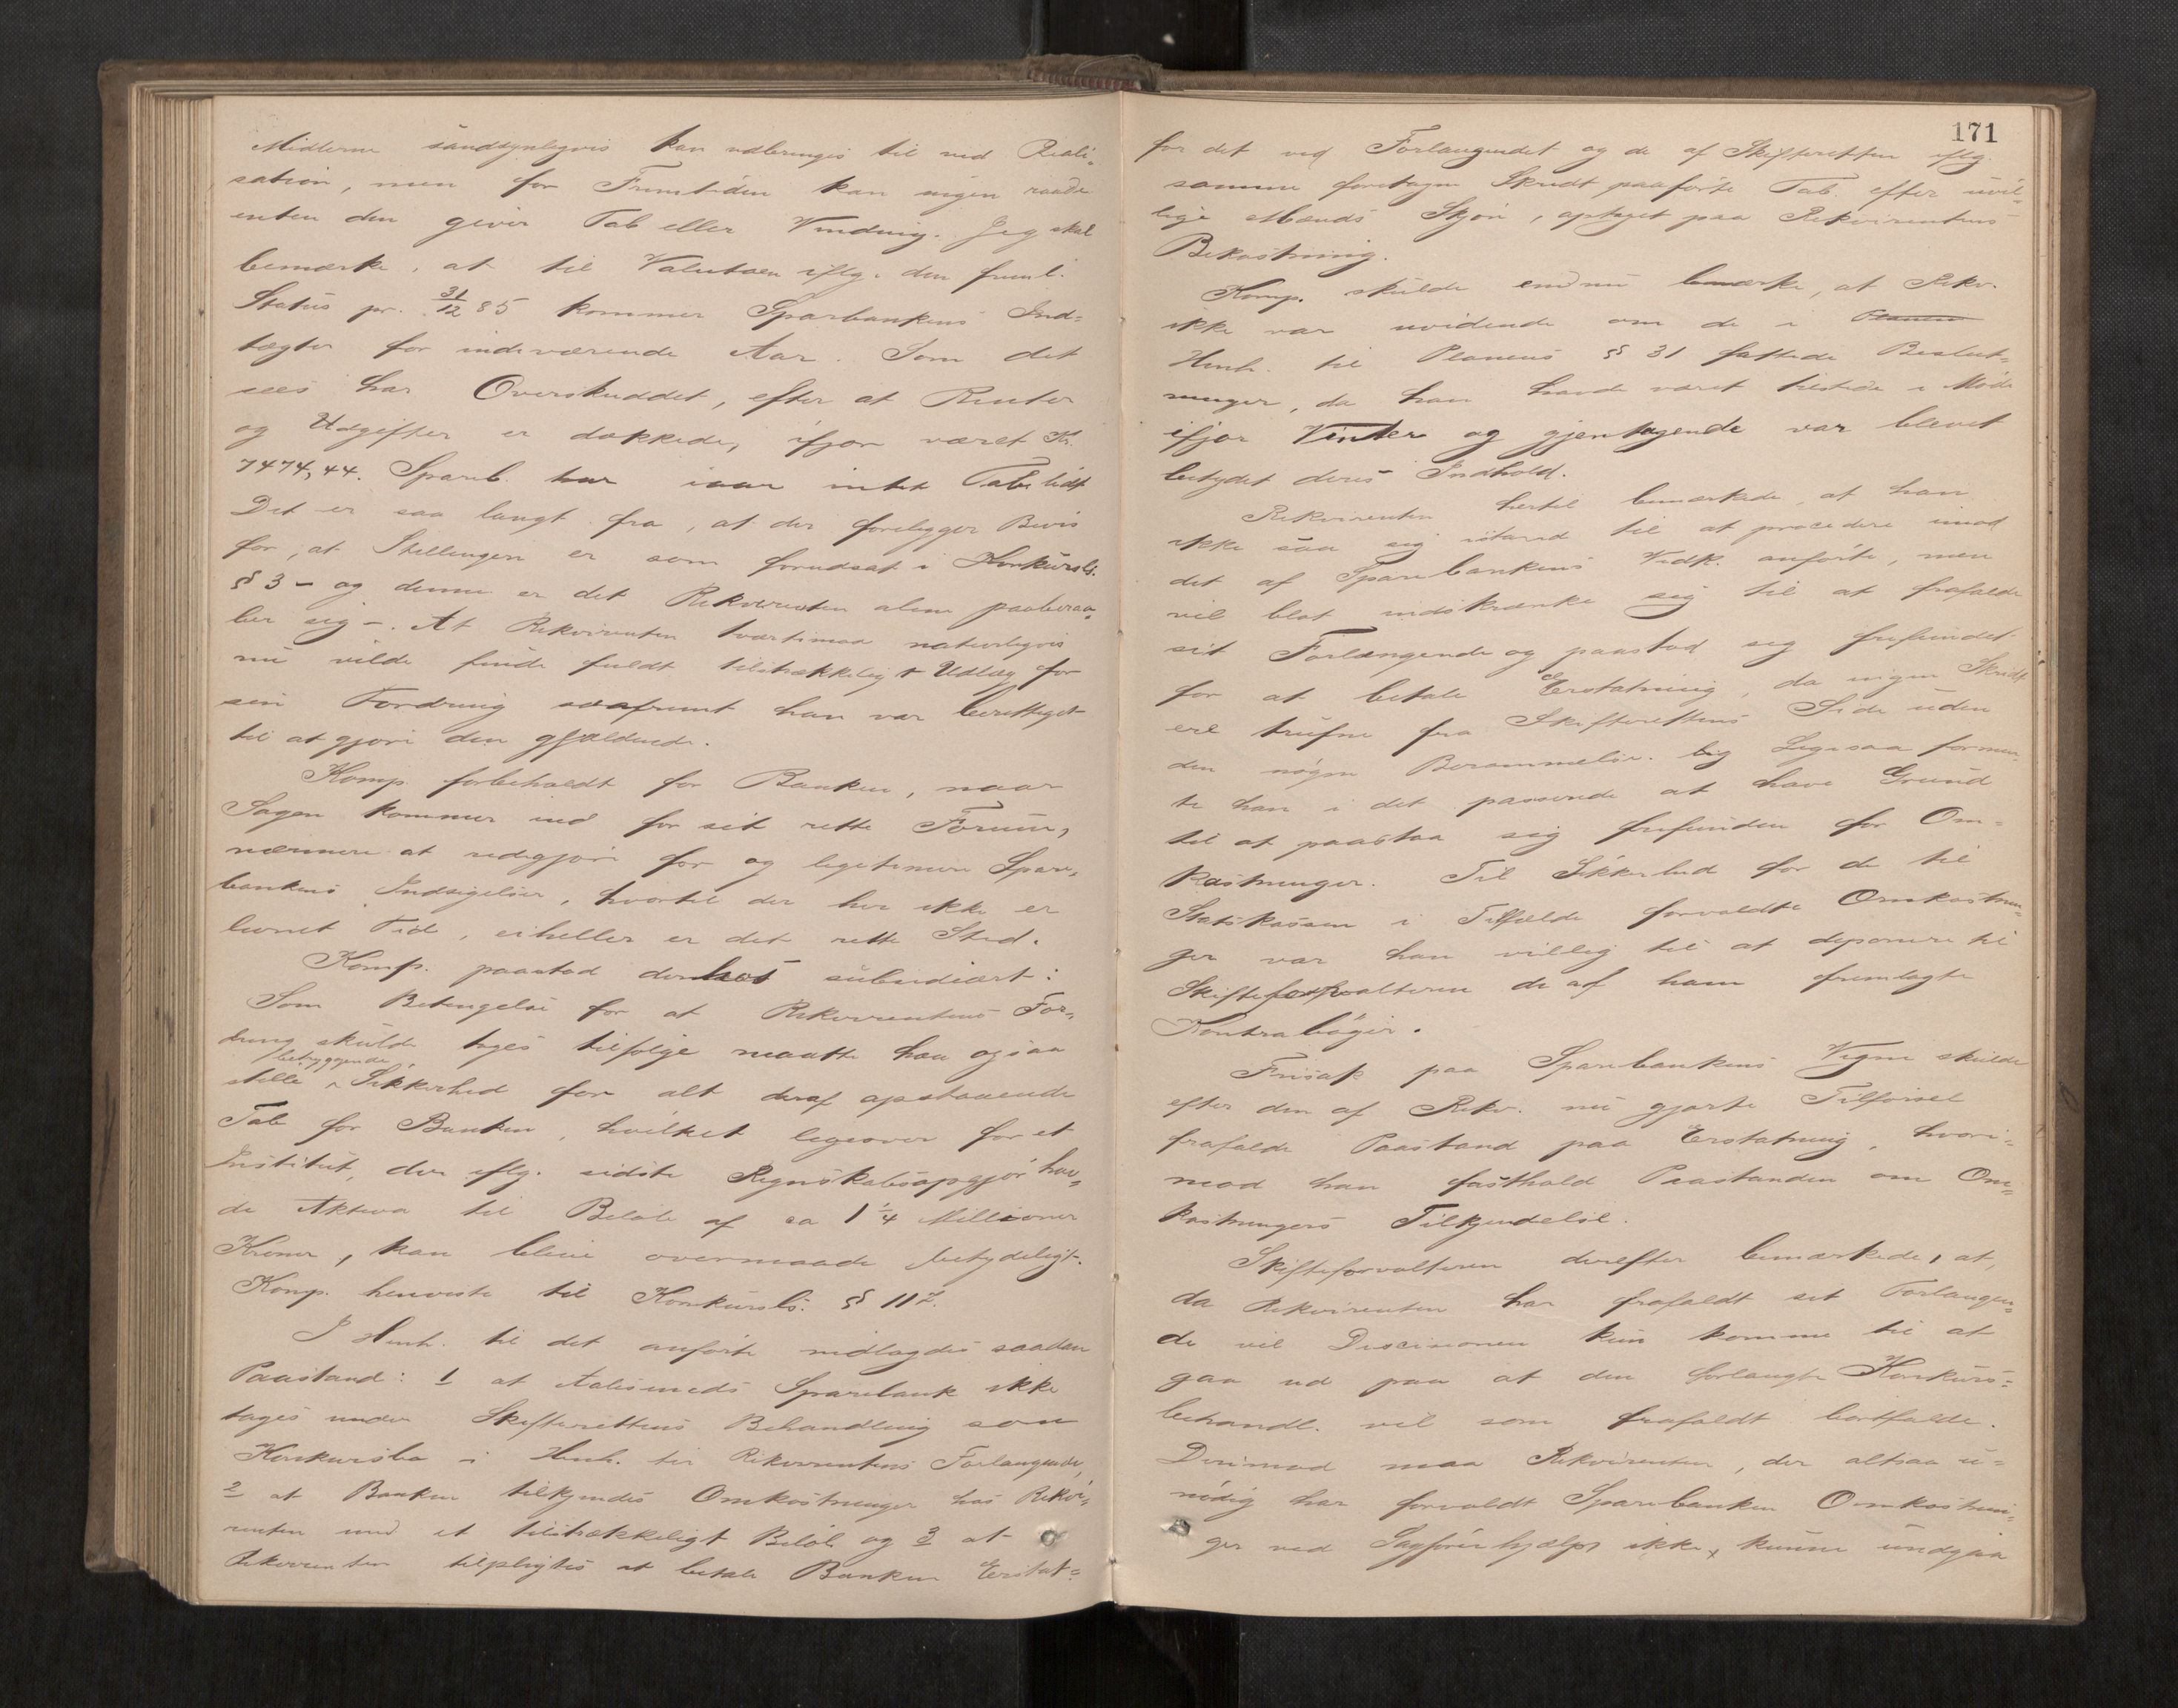 Midlerne sandsynligvis kan udbringes til ved Reali-
sation, men for Fremtiden kan ingen raade
enten den giver Tab eller Vinding. Jeg skal
bemærke, at til Valutaen iflg. den freml.
Status pr. 31/12 85 kommer Sparbankens Ind-
tægter for indeværende Aar. Som det
sees har Overskuddet, efter at Renter
og Udgifter er dækkede, ifjor været Kr.
7474,44. Spareb. har iaar intet Tab lidt
Det er saa langt fra, at der foreligger Bevis
for, at Stillingen er som forudsat i Konkursl.
§ 3 – og denne er det Rekvirenten alene paaberaa-
ber sig –. At Rekvirenten tvertimod naturligvis
nu vilde finde fuldt tilstrækkeligt Udlæg for
sin Fordring saafremt han var berettiget
til at gjøre den gjældende.
Komp. forbeholdt for Banken, naar
Sagen kommer ind for sit rette Forum,
nærmere at redegjøre for og legitimere Spare-
bankens Indsigelser, hvortil der her ikke er
levnet Tid, eiheller er det rette Sted.
Komp. paastod derhos subsidiært:
Som Betingelse for at Rekvirentens For-
dring skulde tages tilfølge maatte han ogsaa
stille betryggende Sikkerhed for alt deraf opstaaende
Tab for Banken, hvilket ligeover for et
Institut, der iflg. sidste Regnskabsopgjør hav-
de Aktiva til Beløb af ca 1 1/4 Millioner
Kroner, kan blive overmaade betydeligt.
Komp. henviste til Konkursl. § 117.
I Henh. til det anførte nedlagdes saadan
Paastand: 1 at Aalesunds Sparebank ikke
tages under Skifterettens Behandling som
Konkursbo i Henh. til Rekvirentens Forlangende,
2 at Banken tilkjendes Omkostninger hos Rekvi-
renten med et tilstrækkeligt Beløb og 3 at
Rekvirenten tilpligtes at betale Banken Erstat-
171
for det ved Forlangendet og de af Skifteretten iflg.
samme foretagne Skridt paaførte Tab efter uvil-
lige Mænds Skjøn, optaget paa Rekvirentens
Bekostning.
Komp. skulde endnu bemærke, at Rekv.
ikke var uvidende om de i Planen
Henh. til Planens § 31 fattede Beslut-
ninger, da han havde været tilstede i Møde
ifjor Vinter og gjentagende var blevet
betydet deres Indhold.
Rekvirenten hertil bemærkede, at han
ikke saa sig istand til at procedere imod
det af Sparebankens Vedk. anførte, men
vil blot indskrænke sig til at frafalde
sit Forlangende og paastod sig frifundet
for at betale Erstatning, da ingen Skridt
ere trufne fra Skifterettens Side uden
den nøgne Berammelse. Ligesaa formen-
te han i det passerede at have Grund
til at paastaa sig frifunden for Om-
kostninger. Til Sikkerhed for de til
Statskassen i Tilfælde forvoldte Omkostnin-
ger var han villig til at deponere til
Skifteforvalteren de af ham fremlagte
Kontrabøger.
Frisak paa Sparebankens Vegne skulde
efter den af Rekv. nu gjorte Tilførsel
frafalde Paastand paa Erstatning, hvori-
mod han fastholdt Paastanden om Om-
kostningers Tilkjendelse.
Skifteforvalteren derefter bemærkede, at,
da Rekvirenten har frafaldt sit Forlangen-
de vil Decisionen kun komme til at
gaa ud paa at den forlangte Konkurs-
behandl. vil som frafaldt bortfalde.
Derimod maa Rekvirenten, der altsaa u-
nødig har forvoldt Sparebanken Omkostnin-
ger ved Sagførerhjælp ikke kunne undgaa